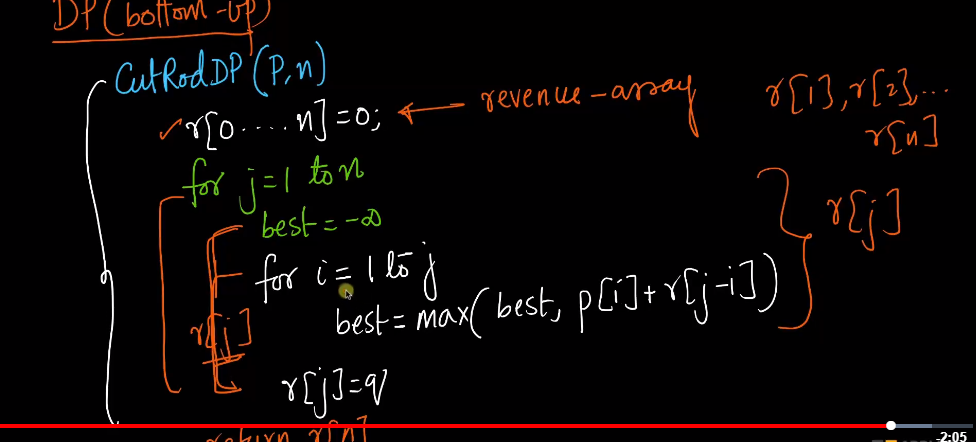 DP(bottom-up)
CutRodDP(P,n)
r[0....n]=0; ← revenue-array
r[1], r[2],...
r[n]
for j=1 to n
best = -∞
r[j]
for i = 1 to j
best = max(best, p[i]+r[j-i])
r[j]
r[j]=q
return r[n]
-2:05